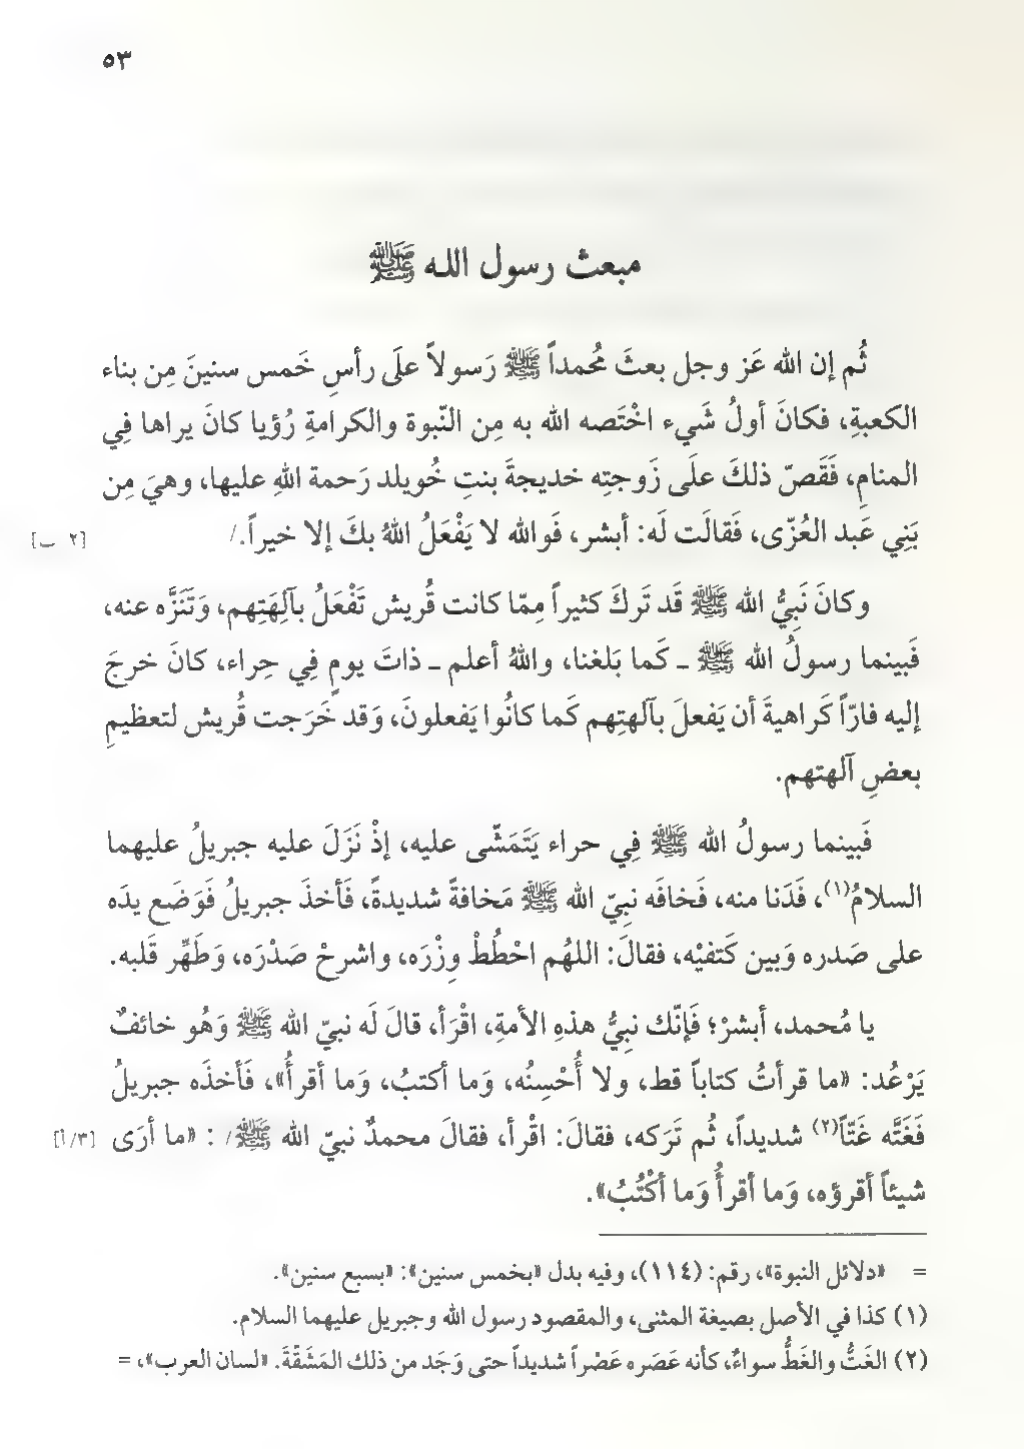 ٥٣
مبعث رسول الله ﷺ
ثُم إن الله عَز وجل بعثَ مُحمداً ﷺ رَسولاً علَى رأسِ خَمس سنينَ مِن بناء
الكعبةِ، فكانَ أولُ شَيء اخْتَصه الله به مِن النّبوة والكرامةِ رُؤيا كانَ يراها فِي
المنامِ، فَقَصّ ذلكَ علَى زَوجتِه خديجةَ بنتِ خُويلد رَحمة اللهِ عليها، وهيَ مِن
بَنِي عَبد العُزّى، فَقالَت لَه: أبشر، فَوالله لا يَفْعَلُ اللهُ بكَ إلا خيراً./ [٢ ب]
وكانَ نَبِيُّ الله ﷺ قَد تَركَ كثيراً مِمّا كانت قُريش تَفْعَلُ بآلِهَتِهم، وَتَنَزَّه عنه،
فَبينما رسولُ الله ﷺ ـ كَما بَلغنا، واللهُ أعلم ـ ذاتَ يومٍ فِي حِراء، كانَ خرجَ
إليه فارّاً كَراهيةَ أن يَفعلَ بآلهتِهم كَما كانُوا يَفعلونَ، وَقد خَرَجت قُريش لتعظيمِ
بعضِ آلهتهم.
فَبينما رسولُ الله ﷺ فِي حراء يَتَمَشّى عليه، إذْ نَزَلَ عليه جبريلُ عليهما
السلامُ(١)، فَدَنا منه، فَخافَه نبيّ الله ﷺ مَخافةً شديدةً، فَأخذَ جبريلُ فَوَضَع يدَه
على صَدره وَبين كَتفيْه، فقالَ: اللهُم احْطُطْ وِزْرَه، واشرحْ صَدْرَه، وَطَهِّر قَلبه.
يا مُحمد، أبشرْ؛ فَإنّك نبِيُّ هذهِ الأمةِ، اقْرَأ، قالَ لَه نبيّ الله ﷺ وَهُو خائفٌ
يَرْعُد: «ما قرأتُ كتاباً قط، ولا أُحْسِنُه، وَما أكتبُ، وَما أقرأُ»، فَأخذَه جبريلُ
فَغَتَّه غَتّاً(٢) شديداً، ثُم تَرَكه، فقالَ: اقْرأ، فقالَ محمدٌ نبيّ الله ﷺ/ : «ما أرَى [٣/أ]
شيئاً أقرؤه، وَما أقرأُ وَما أكْتُبُ».
= «دلائل النبوة»، رقم: (١١٤)، وفيه بدل «بخمس سنين»: «بسبع سنين».
(١) كذا في الأصل بصيغة المثنى، والمقصود رسول الله وجبريل عليهما السلام.
(٢) الغَتُّ والغَطُّ سواءٌ، كأنه عَصَره عَصْراً شديداً حتى وَجَد من ذلك المَشَقَّةَ. «لسان العرب»، =